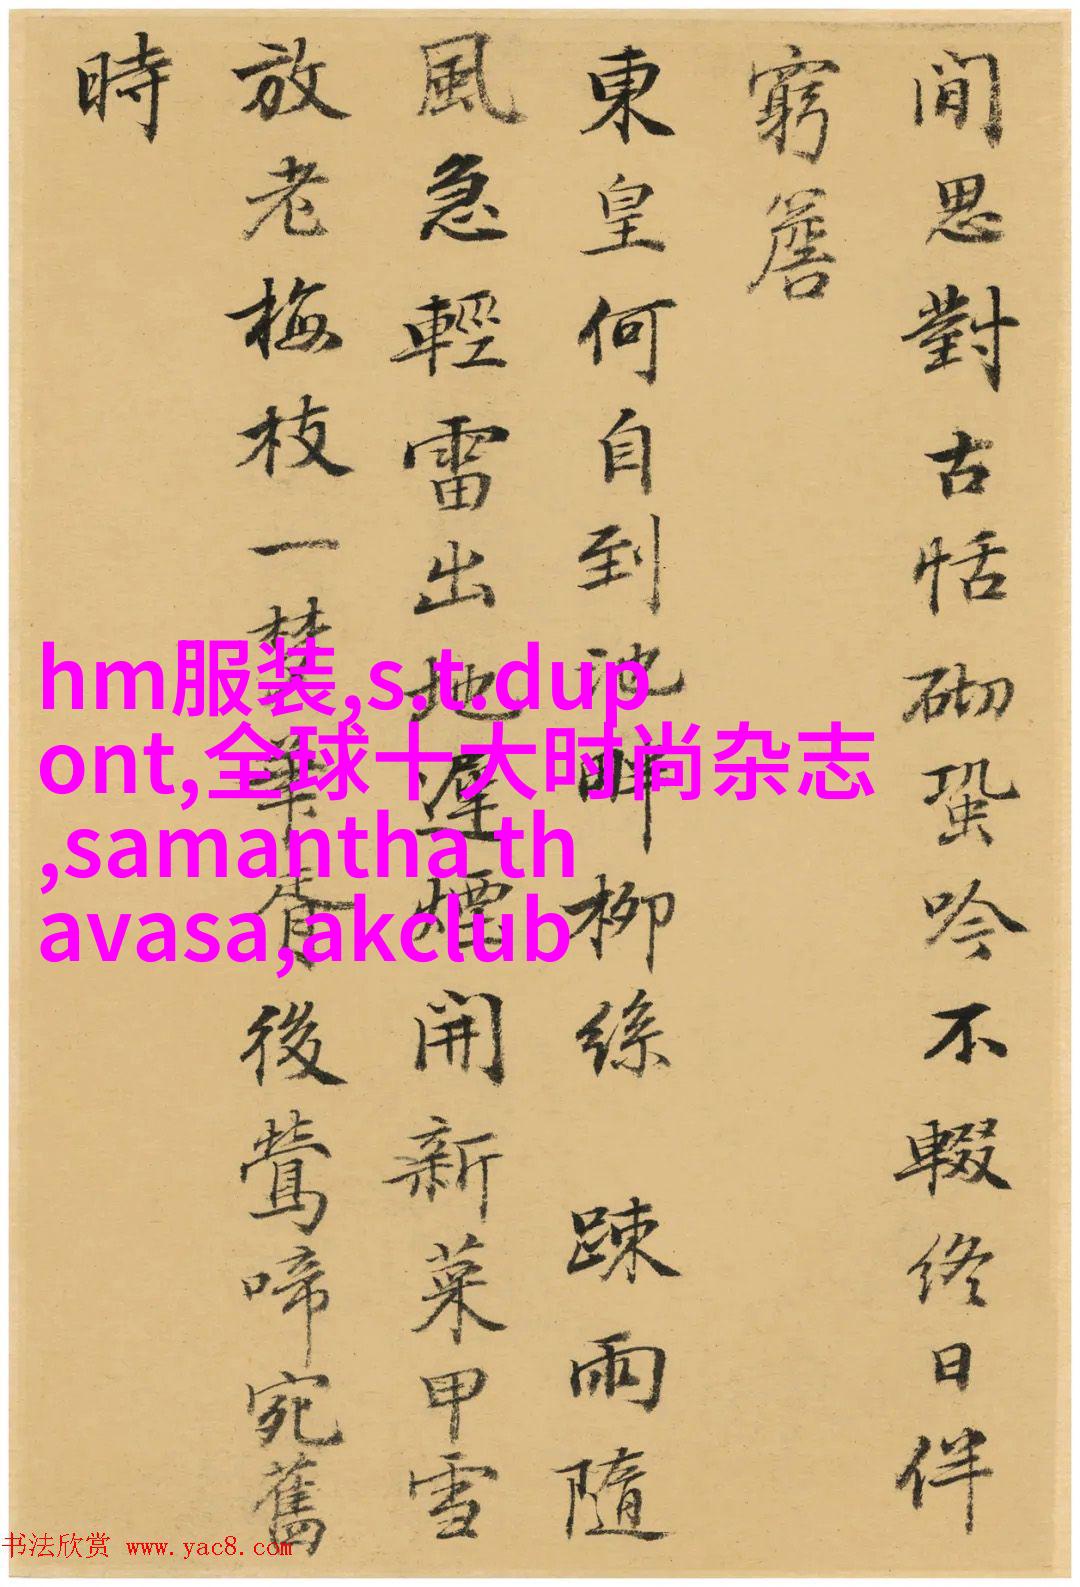 閒思對古恬砌蛩吟不輟終日伴
窮簷
東皇何自到池畔柳絲 踈雨隨
風急輕雷出地遲煙開新菜甲雪
放老梅枝一夢華胥後鶯啼宛舊
時
hm服装,s.t.dup
ont,全球十大时尚杂志
,samantha th
avasa,akclub
书法欣赏 www.yac8.com